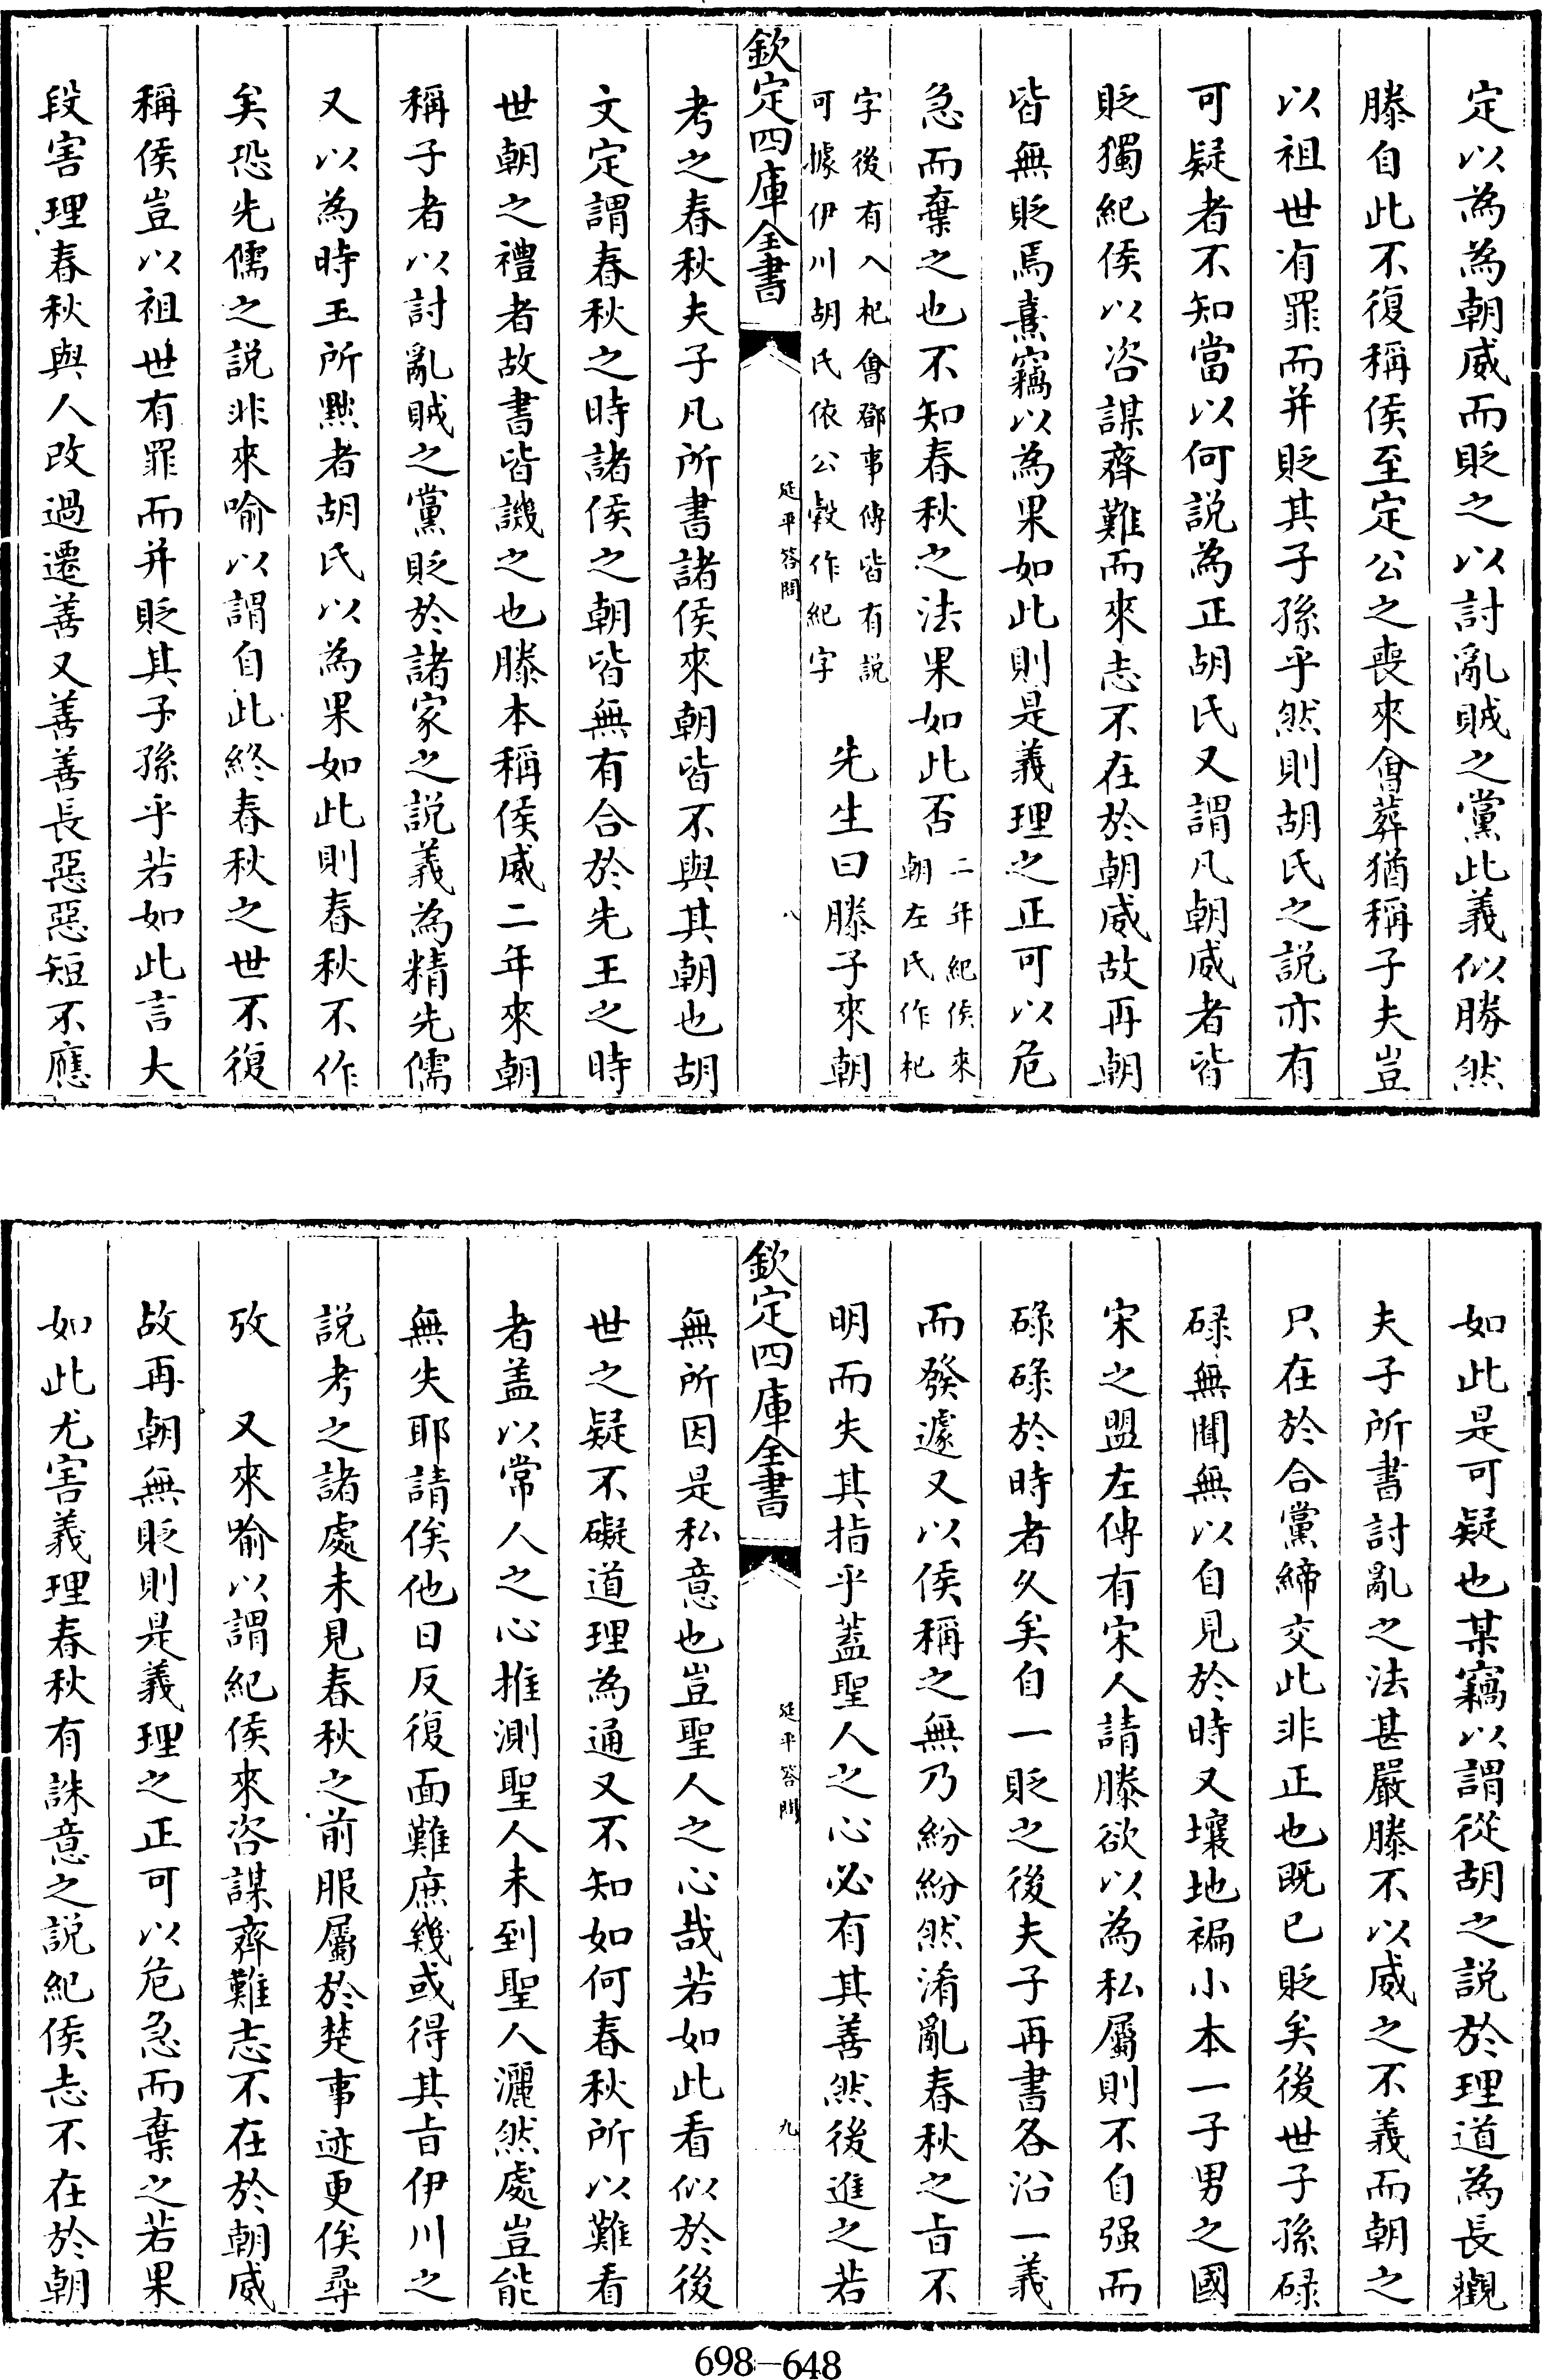 定以為為朝威而貶之以討亂賊之黨此義似勝然
滕自此不復稱侯至定公之喪來會葬猶稱子夫豈
以祖世有罪而并貶其子孫乎然則胡氏之說亦有
可疑者不知當以何説為正胡氏又謂凡朝威者皆
貶獨紀侯以咨謀齊難而來志不在於朝威故再朝
皆無貶焉熹竊以為果如此則是義理之正可以危
急而棄之也不知春秋之法果如此否二年紀侯來
朝左氏作杞
字後有入杞會鄧事傳皆有説
可據伊川胡氏依公穀作紀字
先生曰滕子來朝
欽定四庫全書
延平答問
八
考之春秋夫子凡所書諸侯來朝皆不與其朝也胡
文定謂春秋之時諸侯之朝皆無有合於先王之時
世朝之禮者故書皆譏之也滕本稱侯威二年來朝
稱子者以討亂賊之黨貶於諸家之説義為精先儒
又以為時王所黜者胡氏以為果如此則春秋不作
矣恐先儒之説非來喻以謂自此終春秋之世不復
稱侯豈以祖世有罪而并貶其子孫乎若如此言大
段害理春秋與人改過遷善又善善長惡惡短不應
如此是可疑也某竊以謂從胡之説於理道為長觀
夫子所書討亂之法甚嚴滕不以威之不義而朝之
只在於合黨締交此非正也既已貶矣後世子孫碌
碌無聞無以自見於時又壤地褊小本一子男之國
宋之盟左傳有宋人請滕欲以為私屬則不自强而
碌碌於時者久矣自一貶之後夫子再書各沿一義
而發遽又以侯稱之無乃紛紛然淆亂春秋之旨不
明而失其指乎蓋聖人之心必有其善然後進之若
欽定四庫全書
延平答問
九
無所因是私意也豈聖人之心哉若如此看似於後
世之疑不礙道理為通又不知如何春秋所以難看
者盖以常人之心推測聖人未到聖人灑然處豈能
無失耶請俟他日反復面難庶幾或得其旨伊川之
説考之諸處未見春秋之前服屬於楚事迹更俟尋
攷　又來喻以謂紀侯來咨謀齊難志不在於朝威
故再朝無貶則是義理之正可以危急而棄之若果
如此尤害義理春秋有誅意之説紀侯志不在於朝
698-648